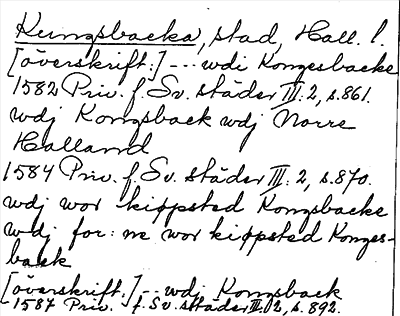 Kungsbacka, stad, Hall. l.
[överskrift:] --- wdi Kongesbacke
1582 Priv. f. Sv. städer III: 2, s. 861.
wdj Kongsback wdj Norre
Halland
1584 Priv. f. Sv. städer III: 2, s. 870.
wdj wor kiøpsted Kongsbacke
wdj for: ne wor kiøpsted Konges-
back
[överskrift:] -- wdj Kongsback
1587 Priv. f. Sv. städer III: 2, s. 892.